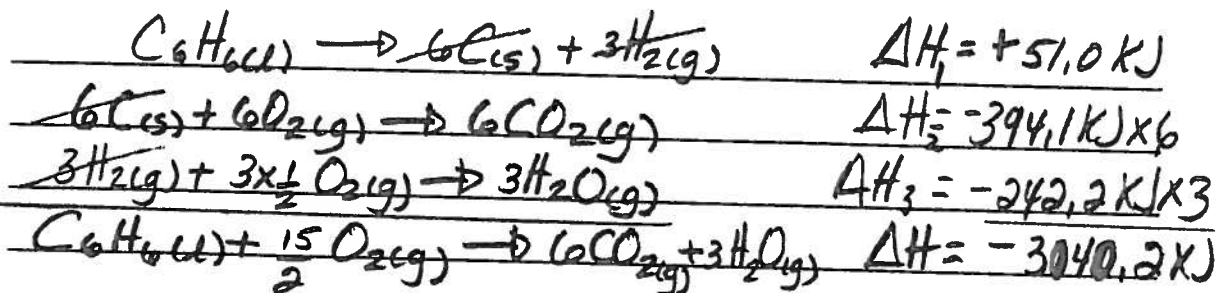 C₆H₆(l) → 6C(s) + 3H₂(g) ΔH₁ = +51,0 KJ
6C(s) + 6O₂(g) → 6CO₂(g) ΔH₂ = -394,1 KJ x 6
3H₂(g) + 3x½ O₂(g) → 3H₂O(g) ΔH₃ = -242,2 KJ x 3
C₆H₆(l) + 15/2 O₂(g) → 6CO₂(g) + 3H₂O(g) ΔH = -3040,2 KJ